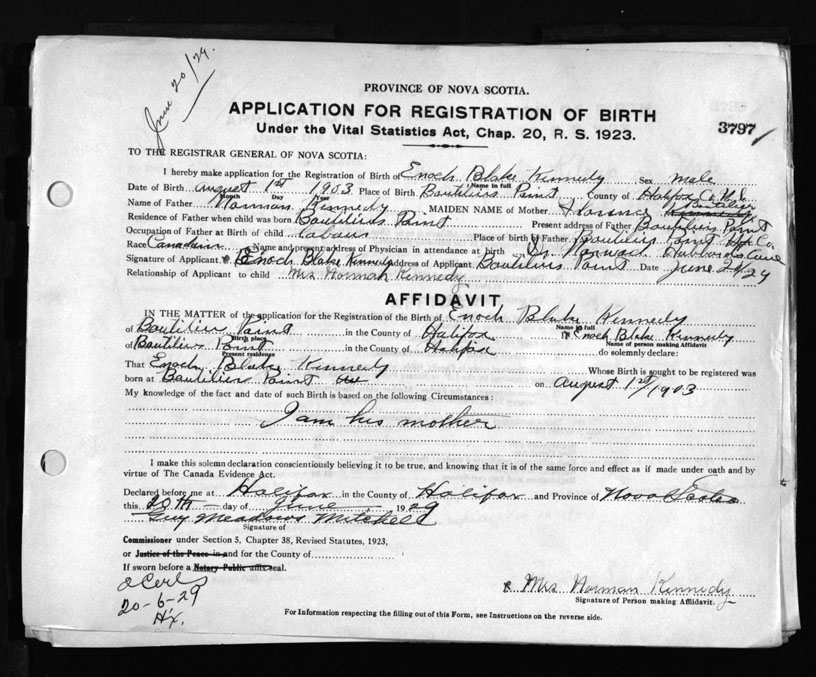 June 20/29.
PROVINCE OF NOVA SCOTIA.
APPLICATION FOR REGISTRATION OF BIRTH
Under the Vital Statistics Act, Chap. 20, R. S. 1923.
3797
TO THE REGISTRAR GENERAL OF NOVA SCOTIA:
I hereby make application for the Registration of Birth of Enoch Blake Kennedy Sex male
Name in full
Date of Birth August 1st 1903 Place of Birth Boutiliers Point County of Halifax Co. N.S.
Month Day Year
Name of Father Norman Kennedy MAIDEN NAME of Mother Florence Kennedy Boutilier
Residence of Father when child was born Boutiliers Point Present address of Father Boutiliers Point
Occupation of Father at Birth of child labour Place of birth of Father Boutiliers Point Hfx. Co.
Race Canadian Name and present address of Physician in attendance at birth Dr.
Signature of Applicant Enoch Blake Kennedy Address of Applicant Boutiliers Point Date June 29
Relationship of Applicant to child Mrs Norman Kennedy
AFFIDAVIT
IN THE MATTER of the application for the Registration of the Birth of Enoch Blake Kennedy
Name in full
of Boutiliers Point in the County of Halifax Enoch Blake Kennedy
Birth place Name of person making Affidavit
of Boutiliers Point in the County of Halifax do solemnly declare:
Present residence
That Enoch Blake Kennedy Whose Birth is sought to be registered was
born at Boutiliers Point on August 1st/1903
My knowledge of the fact and date of such Birth is based on the following Circumstances:
I am his mother
I make this solemn declaration conscientiously believing it to be true, and knowing that it is of the same force and effect as if made under oath and by
virtue of The Canada Evidence Act.
Declared before me at Halifax in the County of Halifax and Province of Nova Scotia
this 20th day of June 1929
Guy Meadows Mitchell
Signature of
Commissioner under Section 5, Chapter 38, Revised Statutes, 1923,
or Justice of the Peace in and for the County of
If sworn before a Notary Public affix seal.
20-6-29
Hx.
Mrs Norman Kennedy
Signature of Person making Affidavit.
For Information respecting the filling out of this Form, see Instructions on the reverse side.